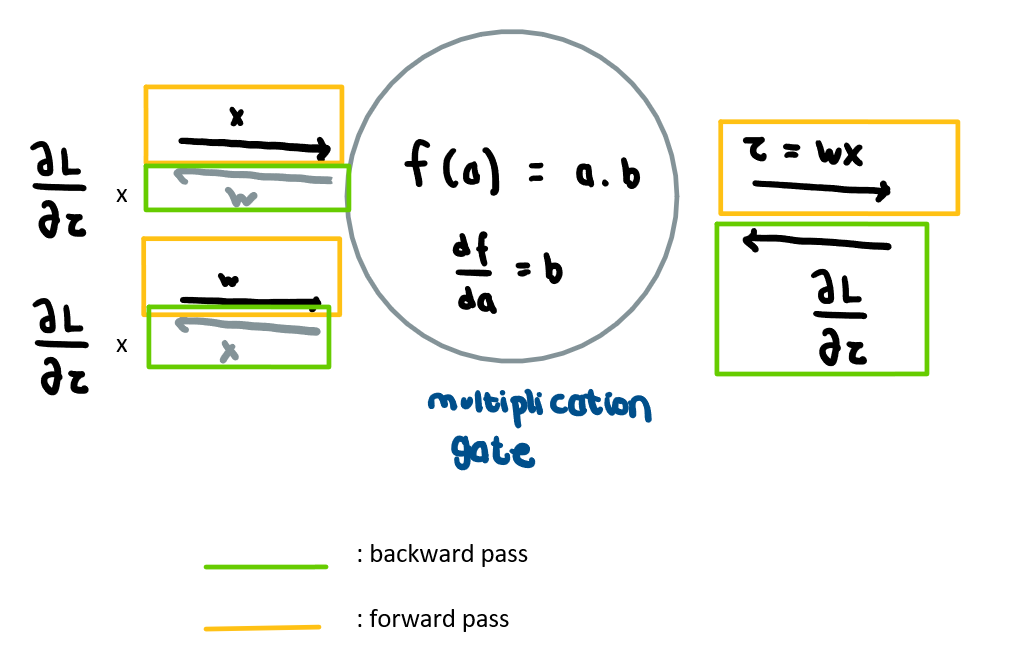 x
∂L
∂z
x
w
f(a) = a.b
df
da
= b
z = wx
w
∂L
∂z
x
x
∂L
∂z
multiplication
gate
: backward pass
: forward pass